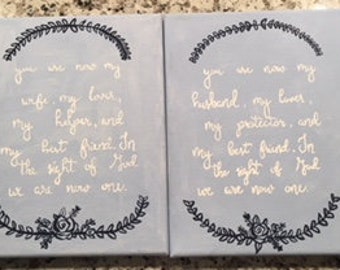 you are now my
wife, my lover,
my helper, and
my best friend. In
the sight of God
we are now one.
you are now my
husband, my lover,
my protector, and
my best friend. In
the sight of God
we are now one.